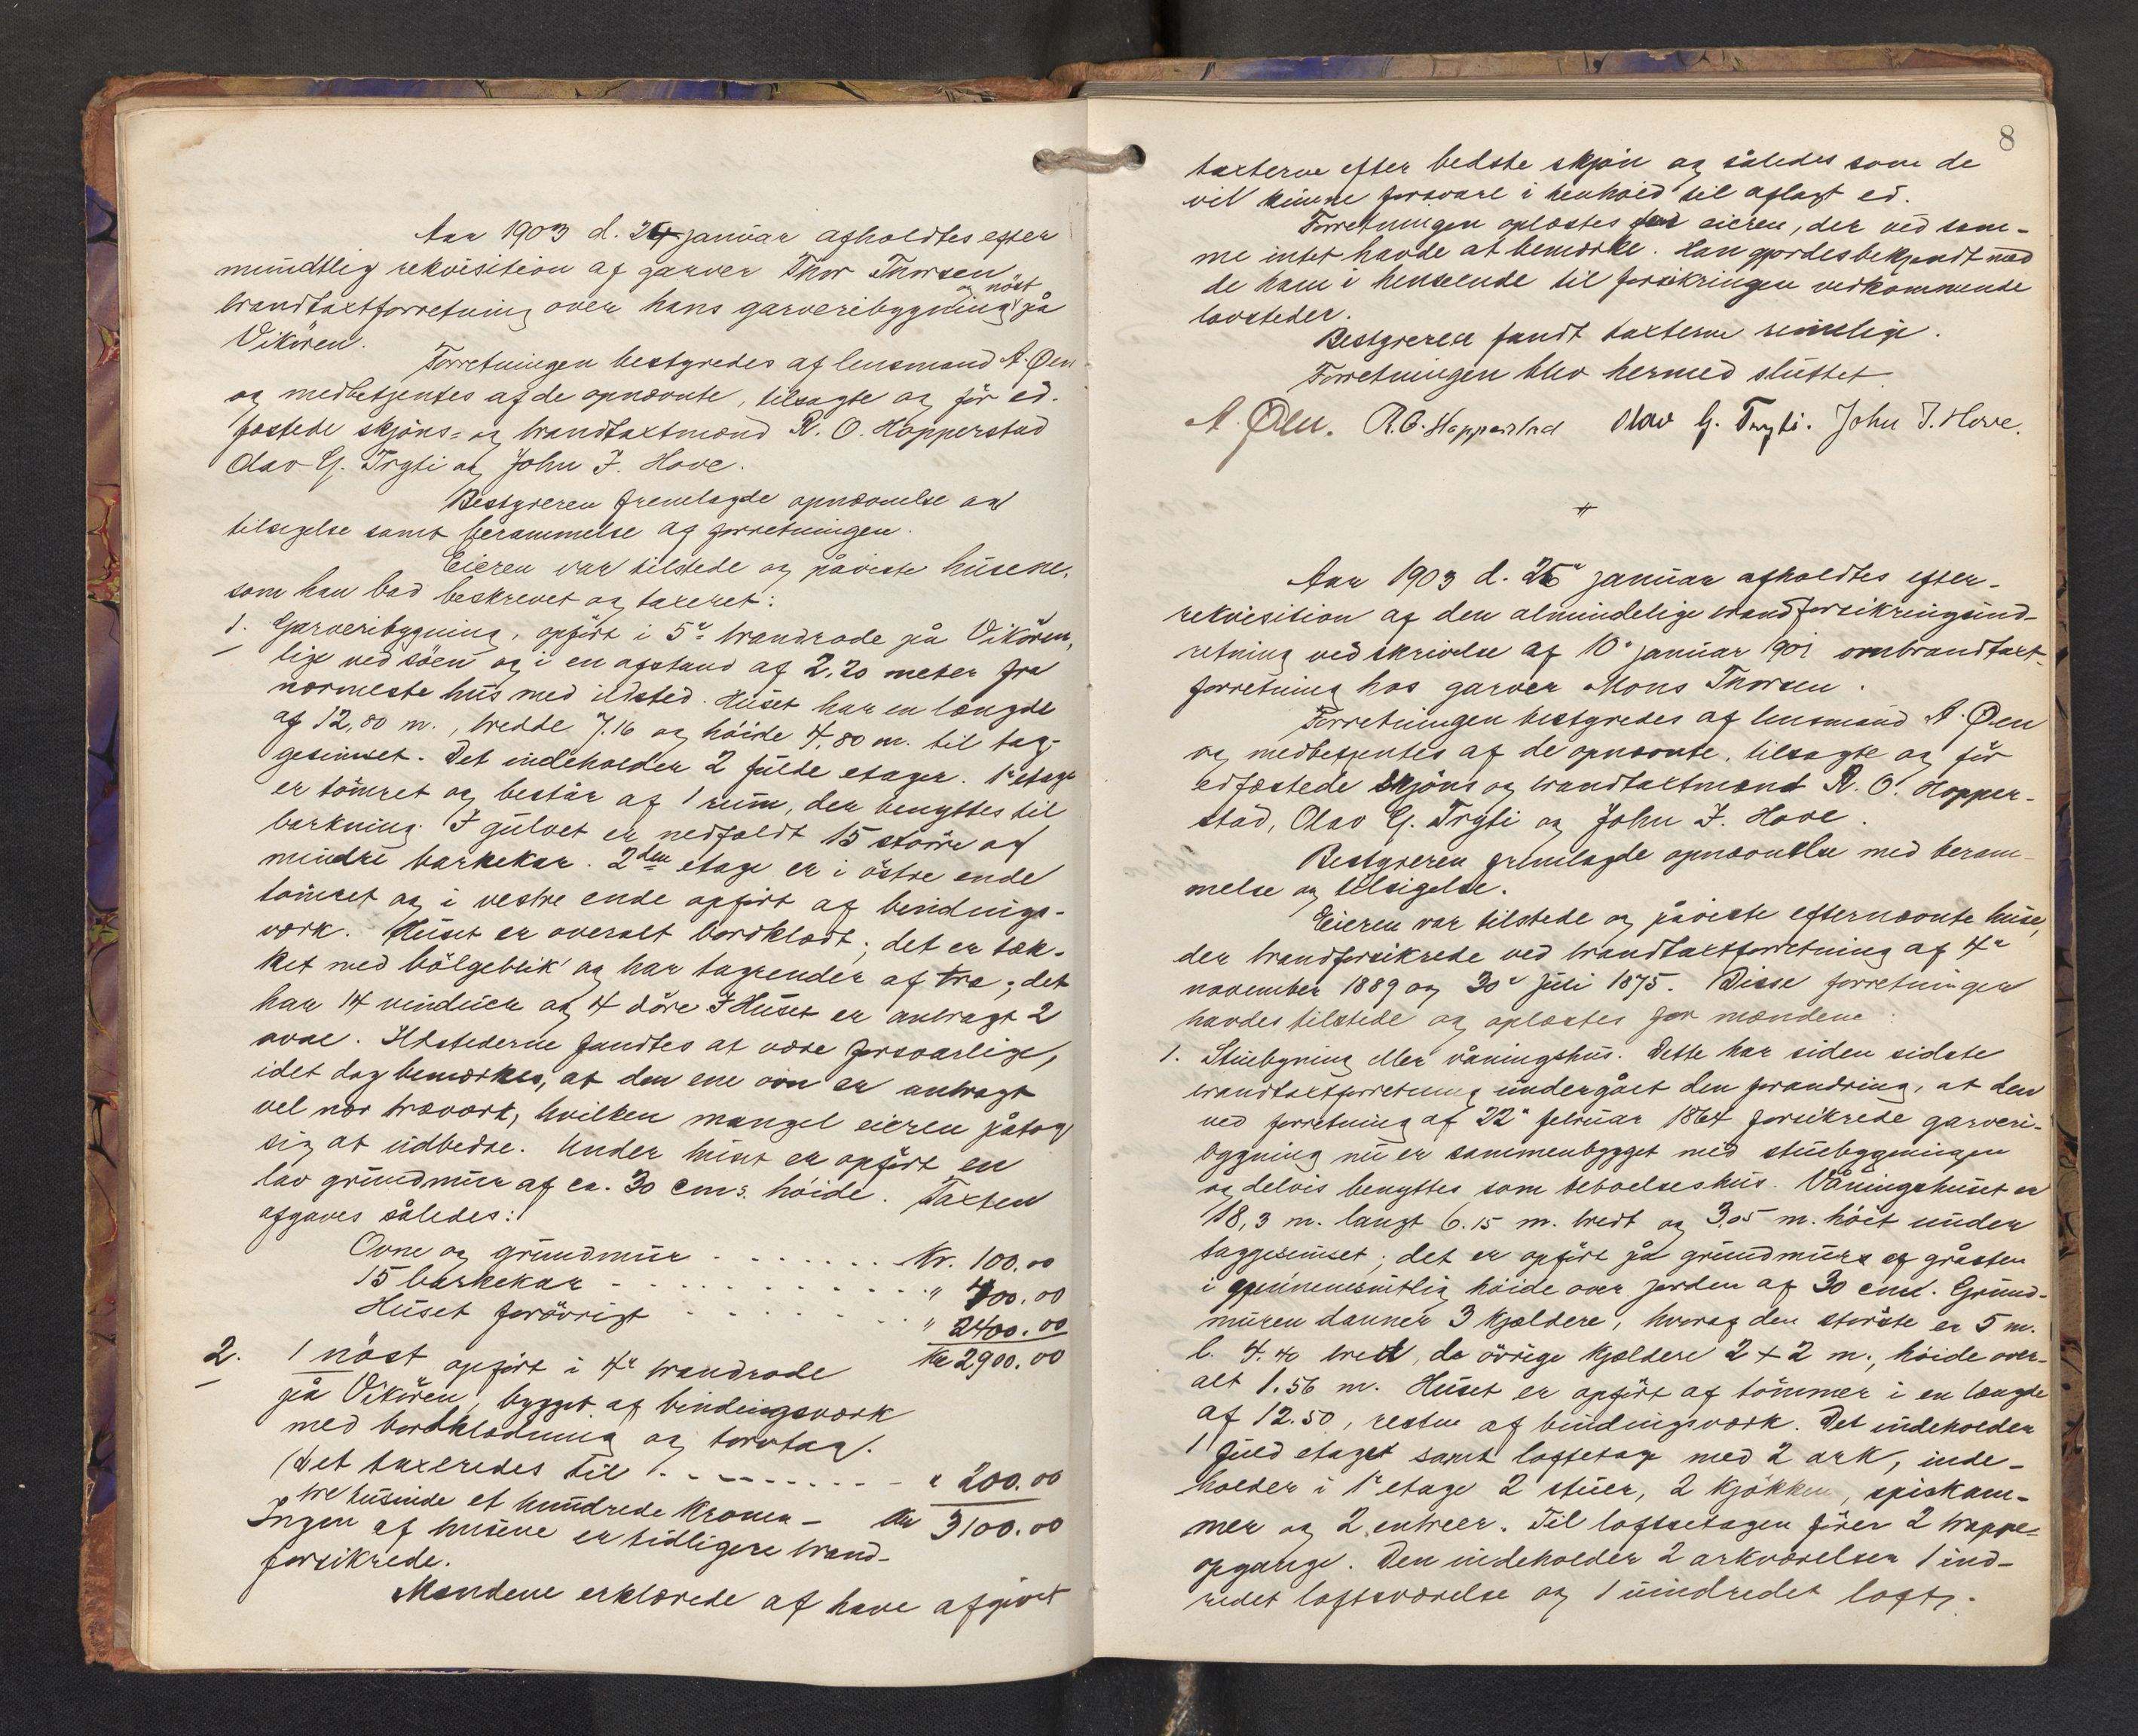 Aar 1903 d. 24 januar afholdtes efter
mundtlig rekvisition af garver Thor Thorsen
brandtaxtforretning over hans garveribygning og nöst på
Vikören.
Forretningen bestyredes af lensmand A. Øen
og medbetjentes af de opnævnte, tilsagte og för ed-
fæstede skjöns- og brandtaxtmænd R. O. Hopperstad
Olav G. Trygti og John J. Hove.
Bestyreren fremlagde opnævnelse og
tilsigelse samt berammelse af forretningen.
Eieren var tilstede og påviste husene,
som han bad beskrevet og taxeret:
1. Garveribygning, opfört i 5te brandrode på Vikören,
lige ved söen og i en afstand af 2,20 meter fra
nærmeste hus med ildsted. Huset har en længde
af 12,80 m., bredde 7.16 og höide 4,80 m. til tag-
gesimset. Det indeholder 2 fulde etager. 1e etage
er tömret og består af 1 rum, der benyttes til
barkning. I gulvet er nedfældt 15 större og
mindre barkekar. 2den etage er i östre ende
tömret og i vestre ende opfört af bindings-
værk. Huset er overalt bordklædt; det er tæk-
ket med bölgeblik og har tagrender af træ; det
har 14 vinduer og 4 döre. I Huset er anbragt 2
ovne. Ildstederne fandtes at være forsvarlige,
idet dog bemærkes, at den ene ovn er anbragt
vel nær træværk, hvilken mangel eieren påtog
sig at udbedre. Under huset er opfört en
lav grundmur af ca. 30 cms. höide. Taxten
afgaves således:
Ovne og grundmur . . . . . . Kr. 100.00
15 barkekar . . . . . . . . . . " 400.00
Huset forövrigt . . . . . . . . " 2400.00
Kr 2900.00
2. 1 nöst opfört i 4e brandrode
på Vikören, bygget af bindingsværk
med bordklædning og torvtag.
Det taxeredes til . . . . . . . . " 200.00
tre tusinde et hundrede kroner — Kr 3100.00
Ingen af husene er tidligere brand-
forsikrede.
Mændene erklærede at have afgivet
8
taxterne efter bedste skjön og således som de
vil kunne forsvare i henhold til aflagt ed.
Forretningen oplæstes for eieren, der ved sam-
me intet havde at bemærke. Han gjordes bekjendt med
de ham i henseende til forsikringen vedkommende
lovsteder.
Bestyreren fandt taxterne rimelige.
Forretningen blev hermed sluttet.
A. Øen. R. O. Hopperstad Olav G. Trygti. John J. Hove.
Aar 1903 d. 26e januar afholdtes efter
rekvisition af den almindelige brandforsikringsind-
retning ved skrivelse af 10e januar 1901 ombrandtaxt-
forretning hos garver Mons Thorsen.
Forretningen bestyredes af lensmand A. Øen
og medbetjentes af de opnævnte, tilsagte og för
edfæstede skjöns og brandtaxtmænd R. O. Hopper-
stad, Olav G. Trygti og John J. Hove.
Bestyreren fremlagde opnævnelse med beram-
melse og tilsigelse.
Eieren var tilstede og påviste efternævnte huse,
der brandforsikrede ved brandtaxtforretning af 4e
november 1889 og 30e juli 1875. Disse forretninger
havdes tilstede og oplæstes for mændene.
1. Stuebygning eller våningshus. Dette har siden sidste
brandtaxtforretning undergået den forandring, at den
ved forretning af 22e februar 1864 forsikrede garveri-
bygning nu er sammenbygget med stuebygningen
og delvis benyttes som beboelseshus. Våningshuset er
18,3 m. langt 6.15 m. bredt og 3,05 m. höit under
taggesimset; det er opfört på grundmur af gråsten
i gjennemsnitlig höide over jorden af 30 cms. Grund-
muren danner 3 kjældere, hvoraf den störste er 5 m.
l. 4.40 bred, de övrige kjældere 2 + 2 m., höide over-
alt 1.56 m. Huset er opfört af tömmer i en længde
af 12.50, resten af bindingsværk. Det indeholder
1 fuld etage samt loftsetage med 2 ark, inde-
holder i 1e etage 2 stuer, 2 kjökken, spiskam-
mer og 2 entreer. Til loftsetagen förer 2 trappe-
opgange. Den indeholder 2 arkværelser 1 ind-
redet loftsværelse og 1 uindredet lofts-